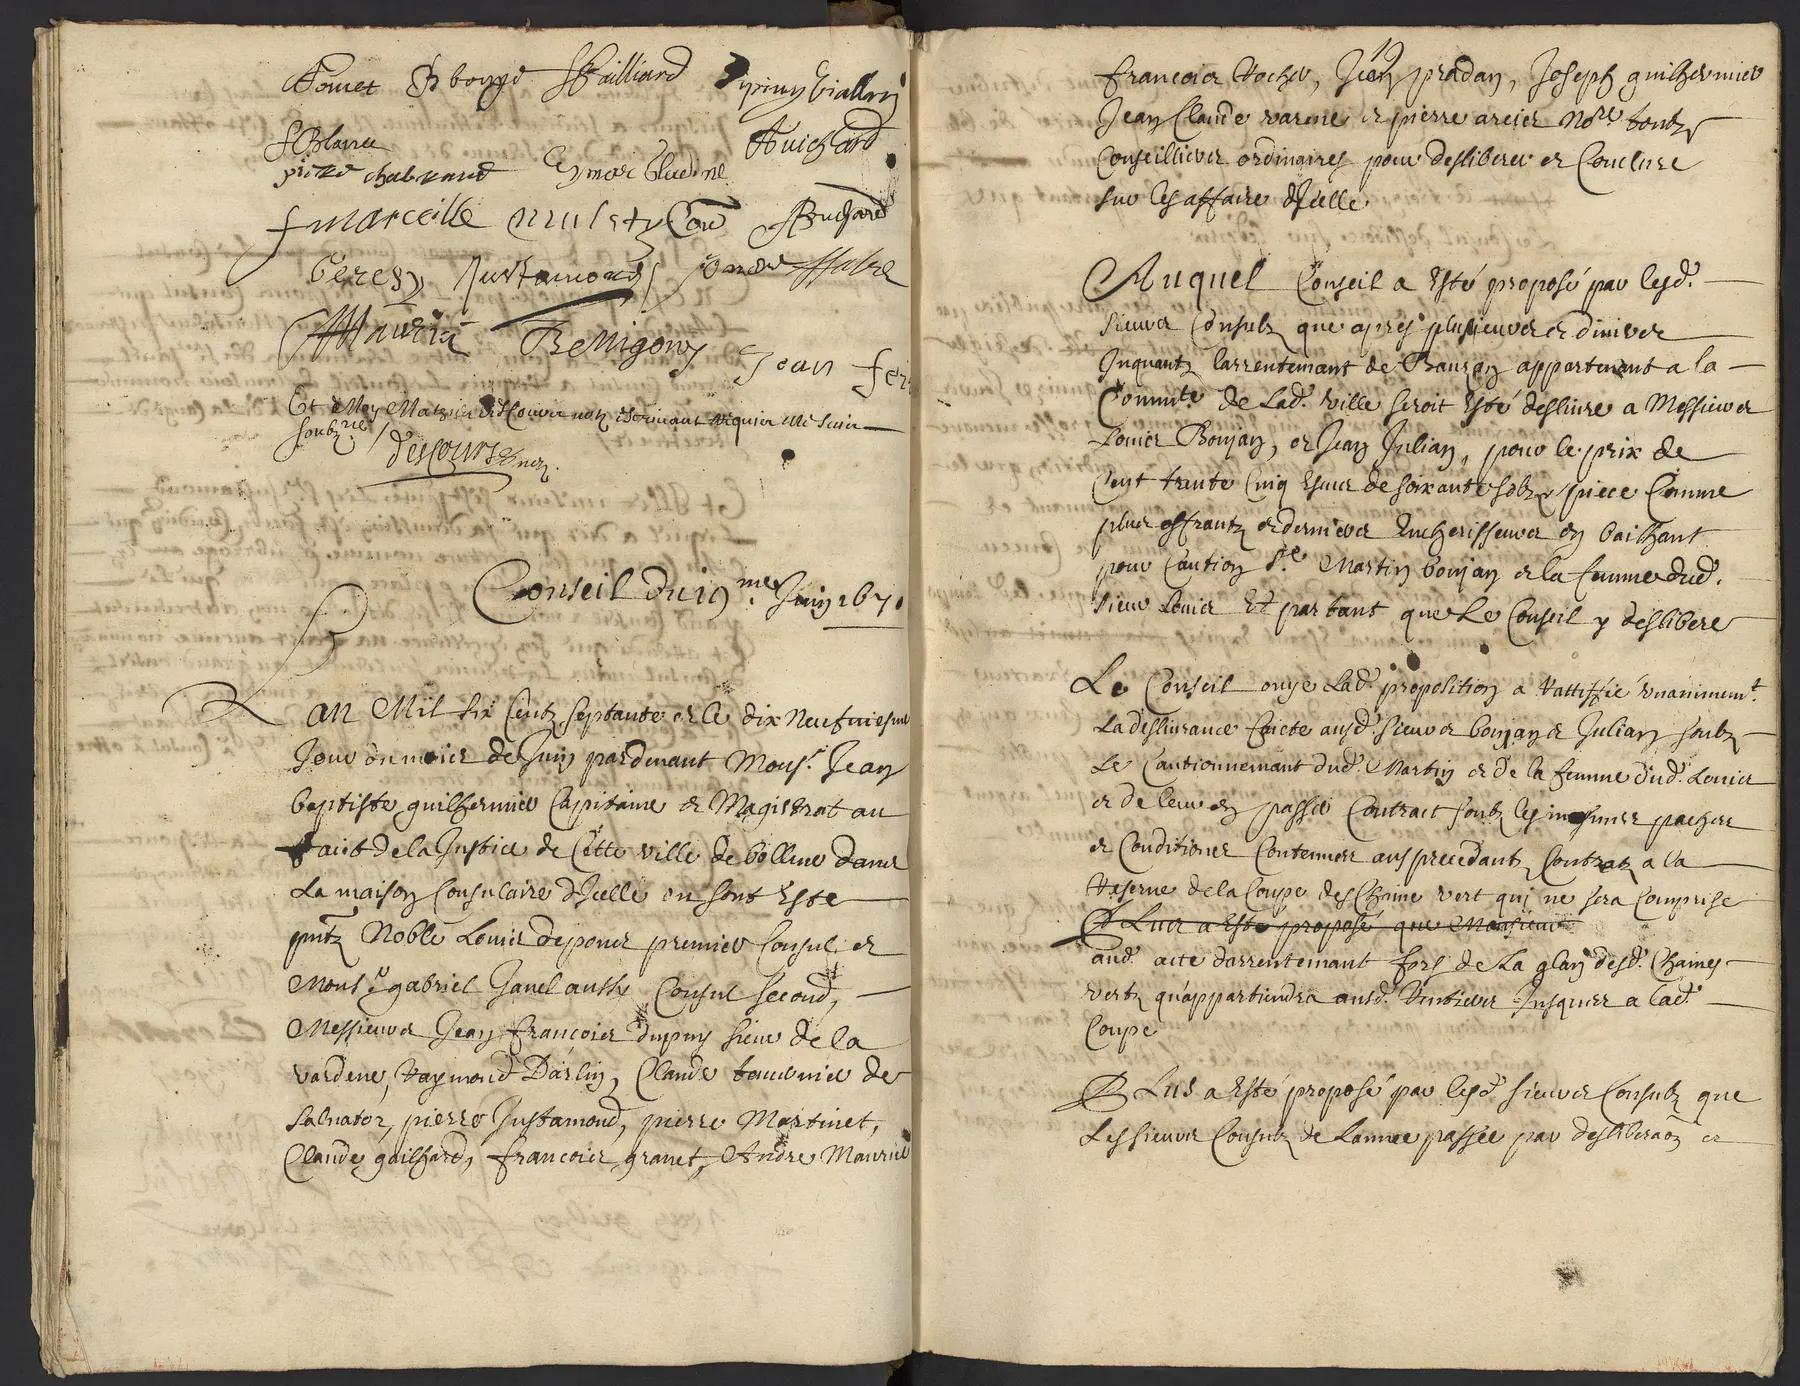 Bailliard
SBlanc
Guichard
pierre chabrand
f marceille
Beres Justamond Favre
Mauric
Remigony Jean fer
Et Moy
soubzne
descours nore.
Conseil du 19me. Juin 1670
L an Mil six Centz septante et le dix Neufviesme
Jour du mois de Juin pardevant Monsr. Jean
baptiste guilhermier Cappitaine et Magistrat au
faict de la Justice de Cette ville de bollene dans
La maison Consulaire d'Icelle on sont Esté
pntz Noble Louis deponer premier Consul et
Monsr gabriel Javel aussy Consul second,
Messieurs Jean francois dupuy sieur de la
vardene, Raymond Darlin, Claude tournier de
salvator, pierre Justamond, pierre Martinet,
Claude gailhard, francois granet, Andre Mauric
19
francois Rocher, Jean pradan, Joseph guilhermier
Jean Claude varene et pierre arcier Nore. toutz
Conseilliers ordinaires pour desliberer et Conclure
sur les affaire d'Icelle
Auquel Conseil a Esté proposé par lesd.
sieurs Consulz que apres plusieurs et divers
Inquantz larrentemant de Bauzon appartenant a la
Commté. de Lad. ville seroit Esté deslivre a Messieurs
Louis Boujan, et Jean Julian, pour le prix de
Cent trente Cinq Escus de soixante solz piece Comme
plus offrantz et derniers Encherisseurs en bailhant
pour Caution Sr. Martin boujan et la femme dud.
sieur Louis Et partant que Le Conseil y deslibere
Le Conseil ouye Lad. proposition a Rattiffié unanimemt.
La deslivrance faicte ausd. sieurs boujan et Julian soubz
Le Cautionnemant dud. Martin et de la femme dud. Louis
et de leur en passer Contract soubz les mesmes paches
et Conditions Contenues aus precedantz Contratz a la
Reserve de la Coupe des Chaine vert qui ne sera Comprise
Plus a Esté proposé que Messieurs
aud. acte darrentemant fors de La glan desd. Chaines
vertz qu'appartiendra ausd. Rentiers Jusques a lad.
Coupe
Plus a Esté proposé par lesd. sieurs Consulz que
Les sieurs Consulz de Lannee passée par desliberaon et